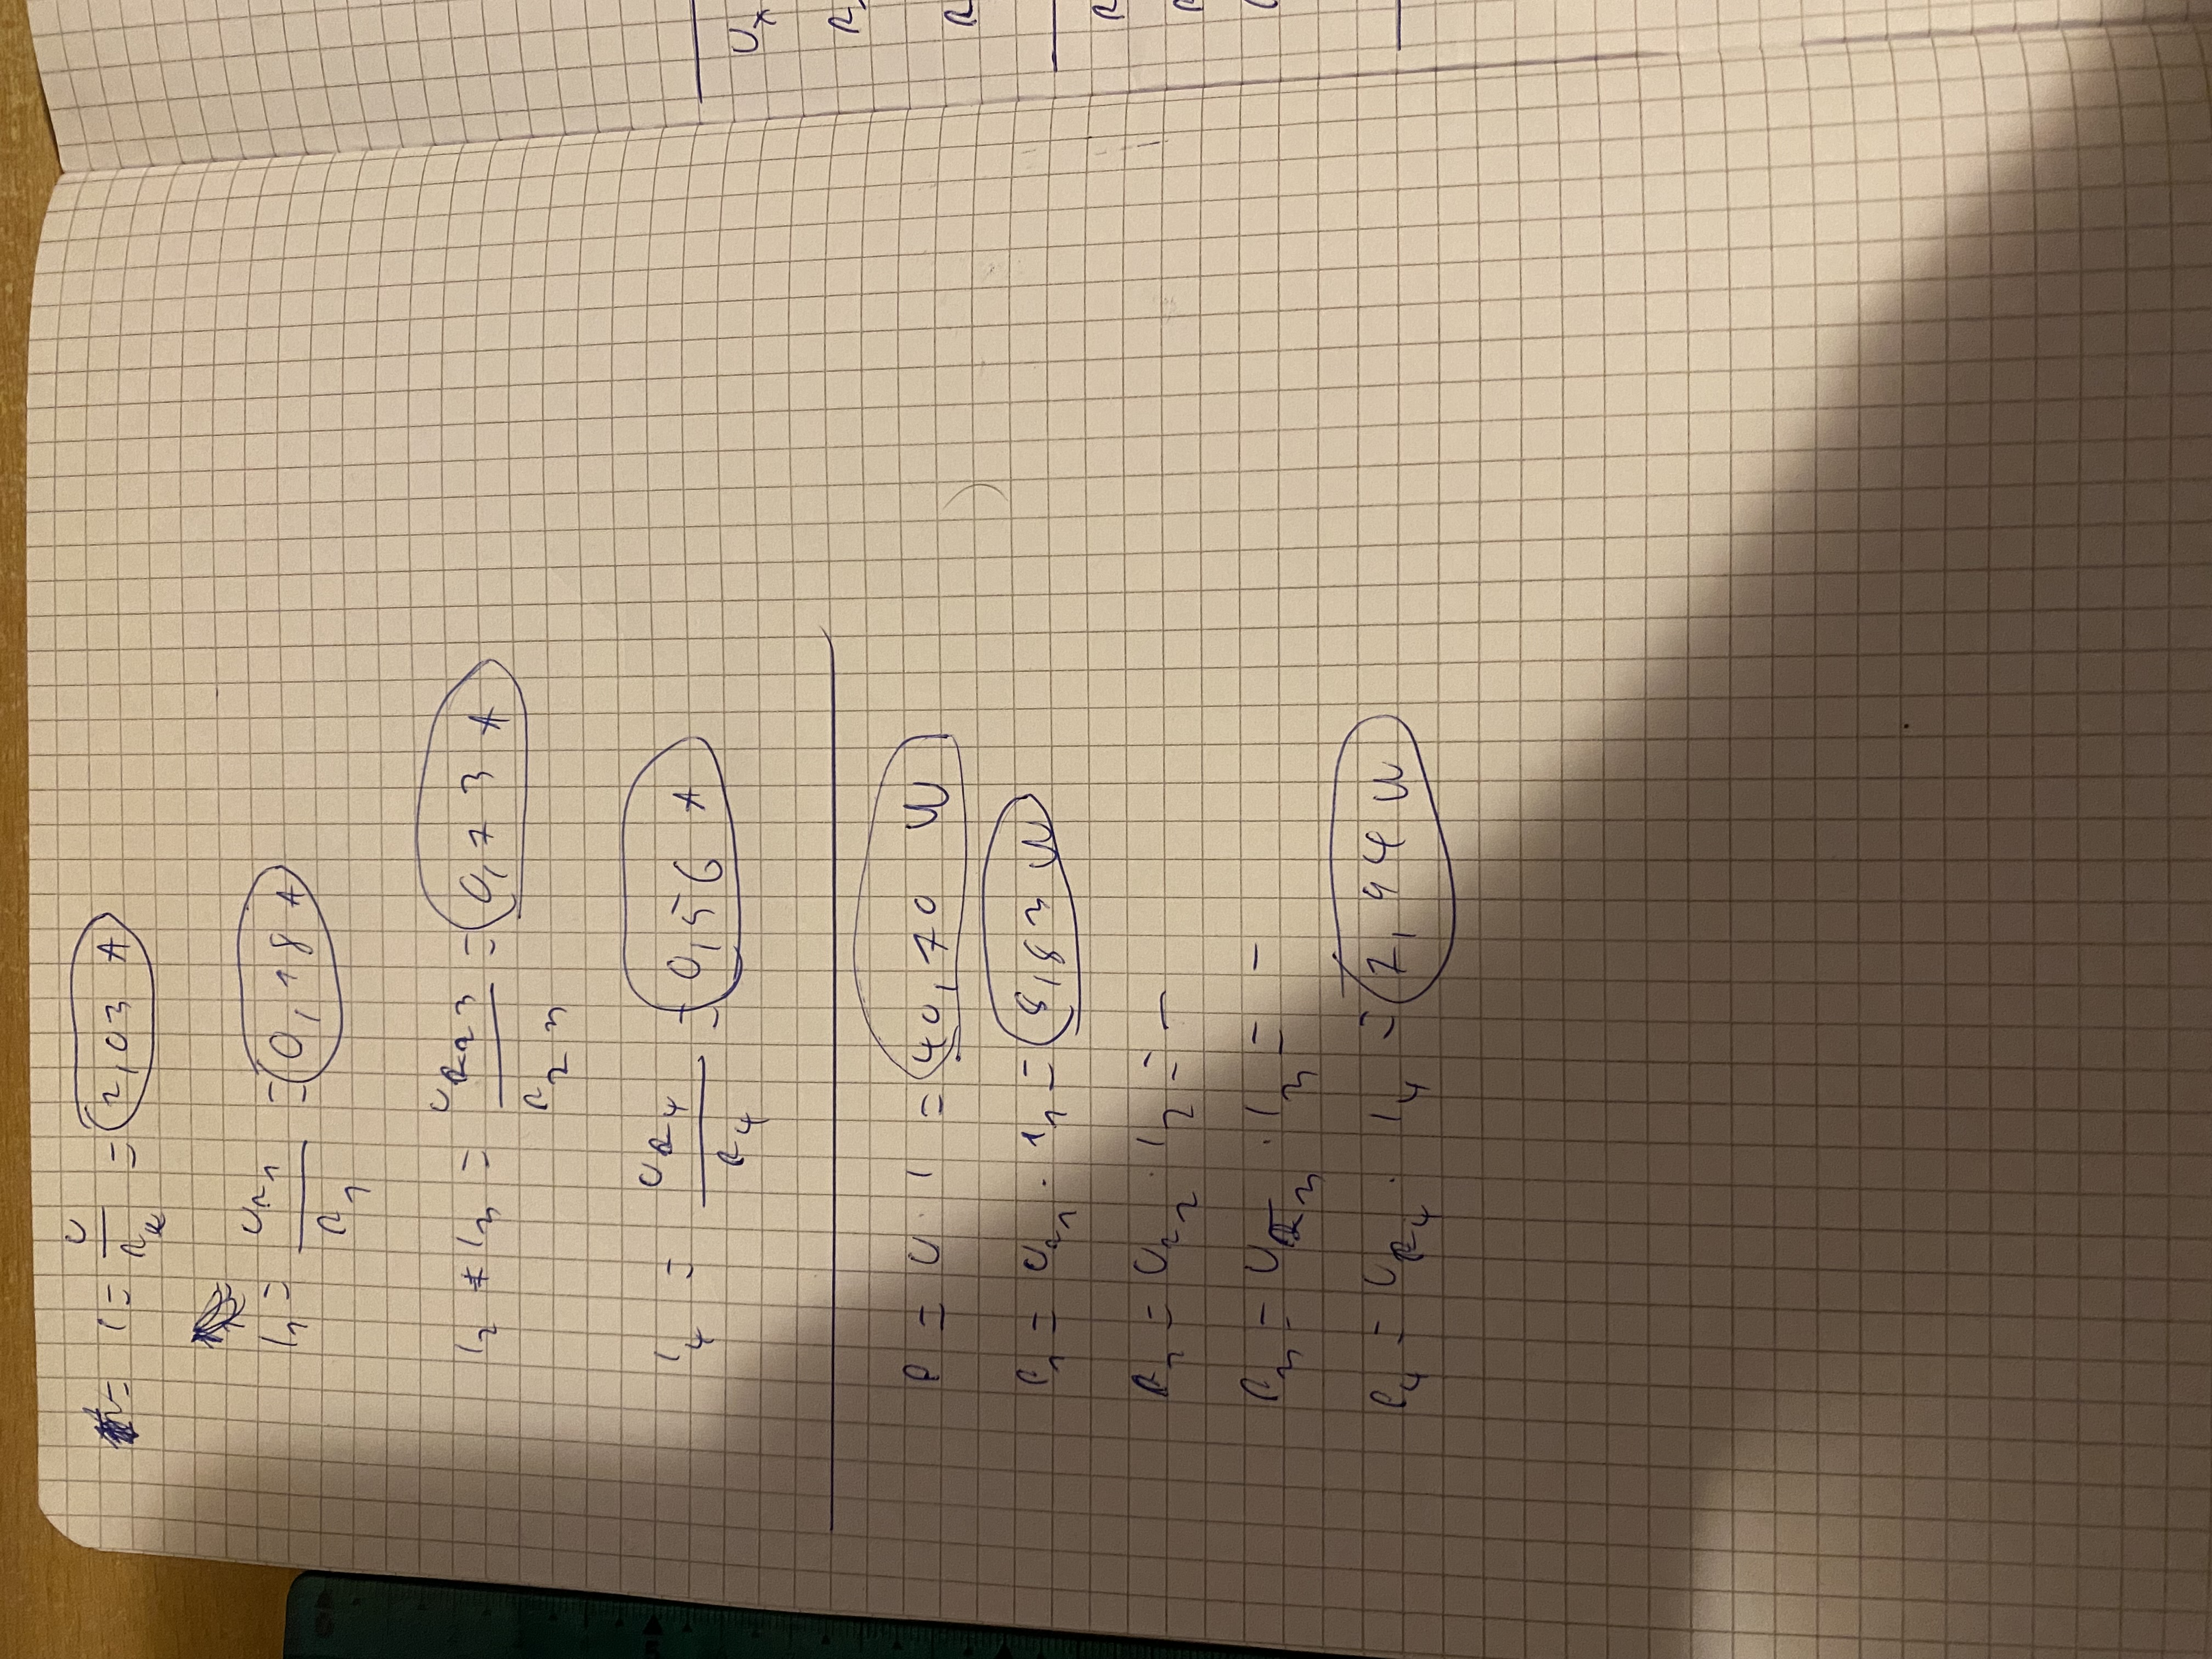 = I = U / Rₑ = 2,03 A
I₁ = U_R1 / R₁ = 0,18 A
I₂ ≠ I₃ = U_R23 / R₂₃ = 0,73 A
I₄ = U_R4 / R₄ = 0,56 A
P = U · I = 40,70 W
P₁ = U_R1 · I₁ = 8,83 W
P₂ = U_R2 · I₂ = –
P₃ = U_R3 · I₃ = –
P₄ = U_R4 · I₄ = 7,94 W
Uₓ
R
R
R
R